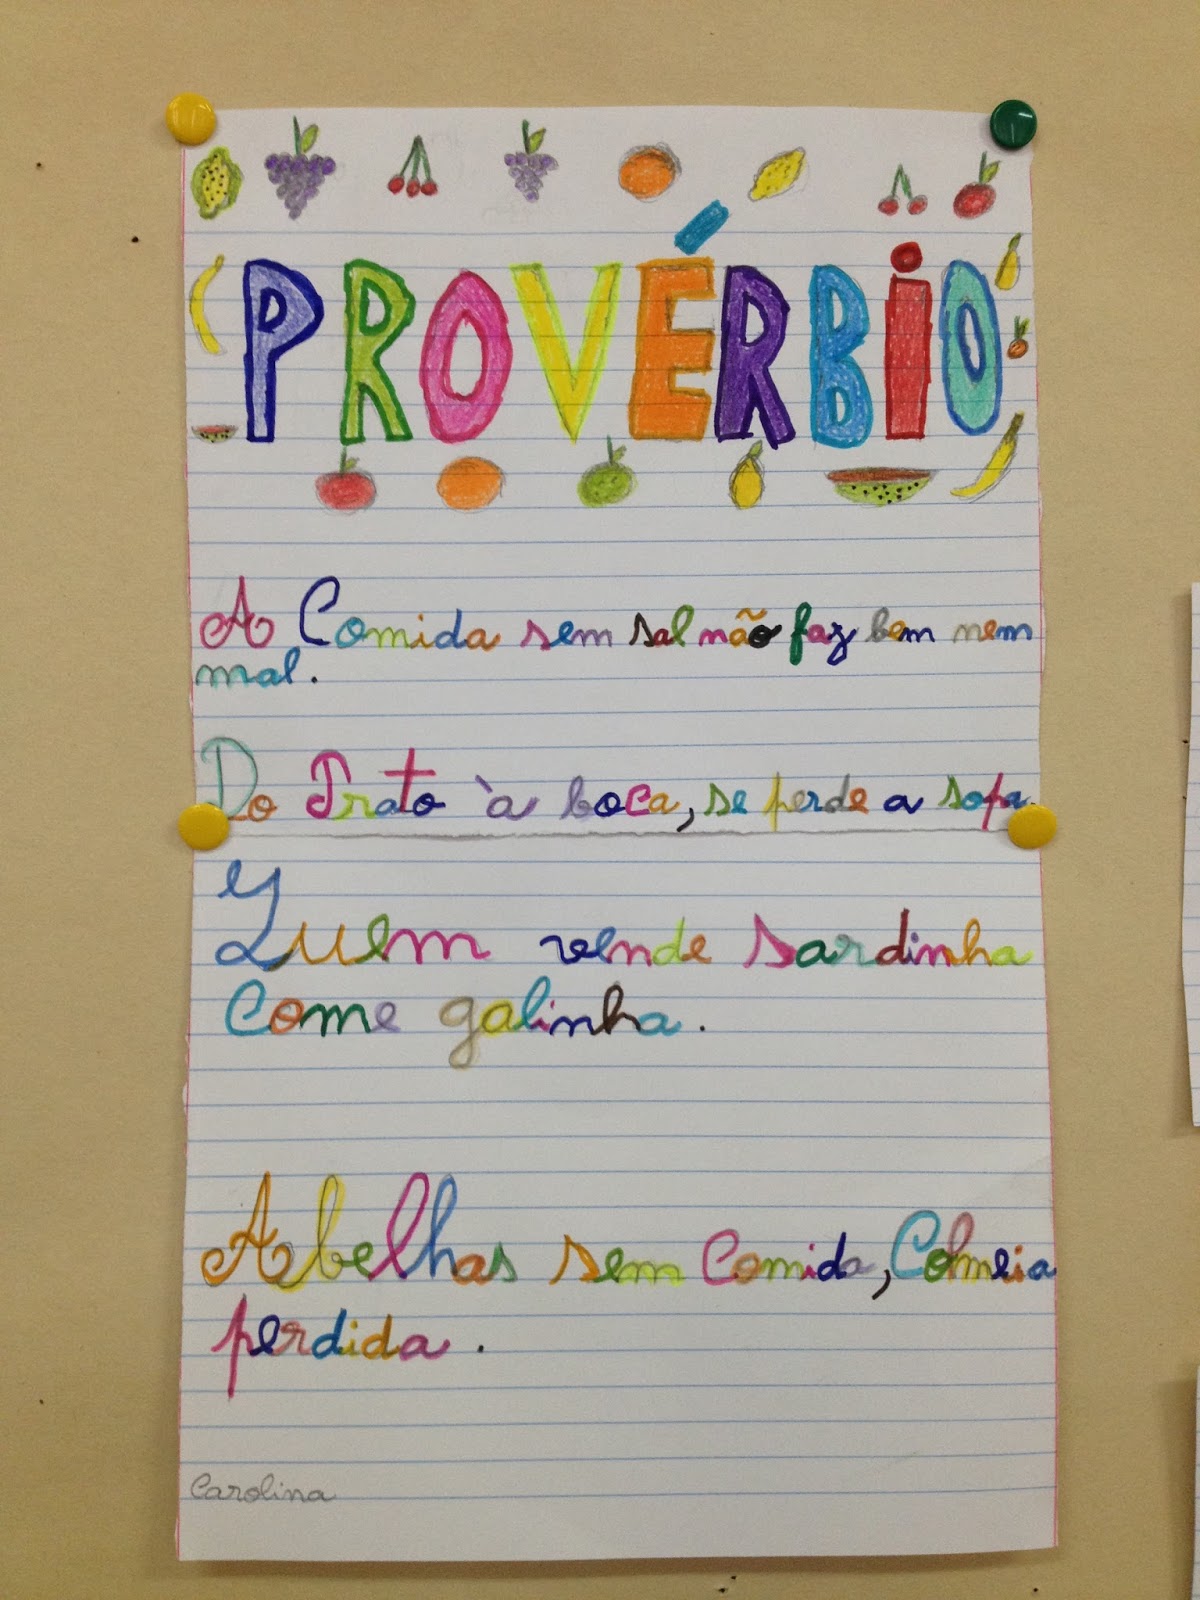 PROVÉRBIO
A Comida sem sal não faz bem nem
mal.
Do Prato à boca, se perde a sopa.
Quem vende sardinha
come galinha.
Abelhas sem Comida, Colmeia
perdida.
Carolina